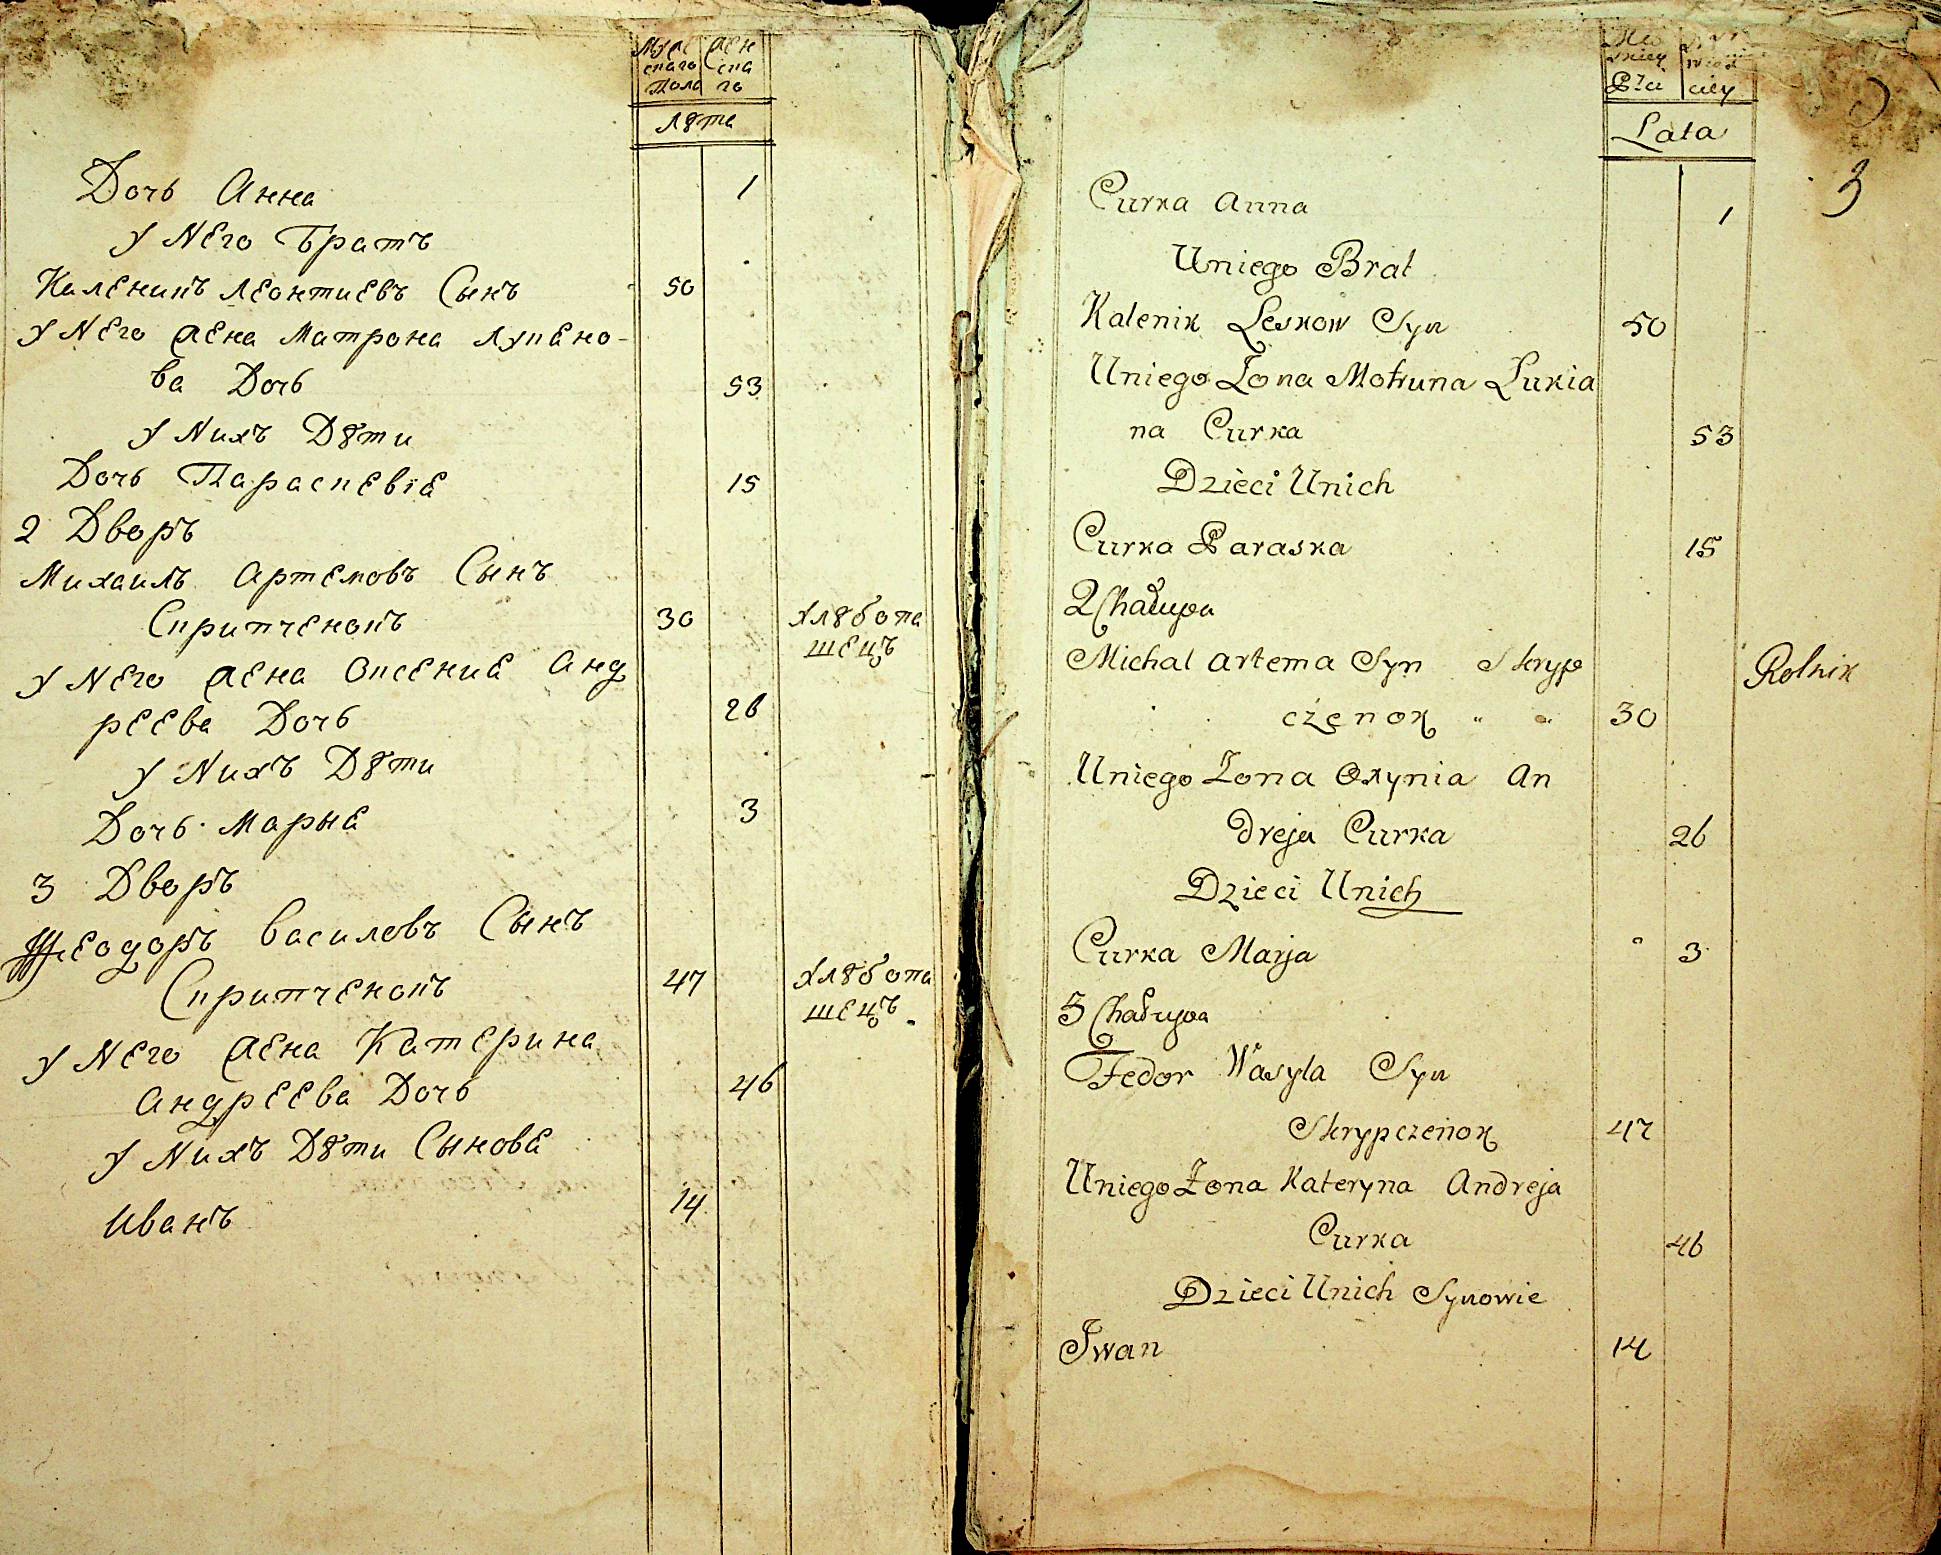 Муж жен
скаго ска
Пола го
Лѣта
Дочь Анна 1
У Него Братъ
Каленикъ Леонтиевъ Сынъ 50
У Него Жена Матрона Лукено-
ва Дочь 53
У Нихъ Дѣти
Дочь Параскевiя 15
2 Дворъ
Михаилъ Артемовъ Сынъ
Скрипченокъ 30 хлѣбопа
шецъ
У Него Жена Оксения Анд
реева Дочь 26
У Нихъ Дѣти
Дочь Марыя 3
3 Дворъ
Ѳеодоръ Василовъ Сынъ
Скрипченокъ 47 хлѣбопа
шецъ
У Него Жена Катерина
Андреева Дочь 46
У Нихъ Дѣти Сыновя
Иванъ 14
Płci
Lata
3
Curka Anna 1
Uniego Brat
Kalenik Leskow Syn 50
Uniego Zona Motruna Lukia
na Curka 53
Dzieci Unich
Curka Paraska 15
2 Chałupa
Michal Artema Syn Skryp Rolnik
czenok " " 30
Uniego Zona Oxynia An
dreja Curka 26
Dzieci Unich
Curka Marja " 3
3 Chałupa
Fedor Wasyla Syn
Skrypczenok 47
Uniego Żona Kateryna Andreja
Curka 46
Dzieci Unich Synowie
Iwan 14